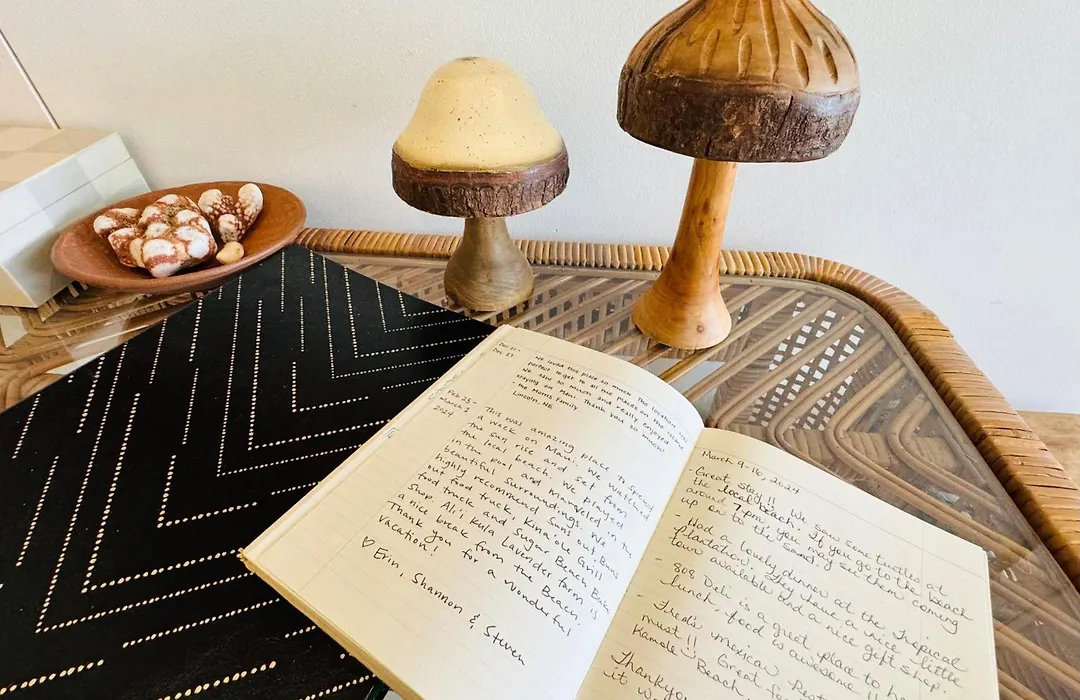 Dec 21 -
Dec 27
We loved this place so much. The location was
perfect to get to all the places on the island
We saw so much and really enjoyed
staying on Maui. Thank you so much!
- The Morris Family
Lincoln, NE
Feb 23 -
March 2
This was amazing place to spend
a week on Maui. We watched
the sun rise and set from
the local beach. We played
in the pool and marveled in the
beautiful surroundings. We
highly recommend Suns out, Buns
out food truck, Kina'ole Grill
food truck, and Sugar Beach Bake
Shop. Ali'i Kula Lavender farm is
a nice break from the Beach.
Thank you for a wonderful
vacation!
♡ Erin, Shannon & Steven
March 9-16, 2024
- Great Stay!! We saw some turtles at
the local beach! If you go to the beach
around 7pm, you may see them coming
up on to the sand.
- Had a lovely dinner at the Tropical
Plantation. They have a nice little
town available and a nice gift shop
- 808 Deli is a great place to h
lunch, food is awesome
- Fred's Mexican Rest
must!! Great fo
Kamole Beach
Thank you
it w